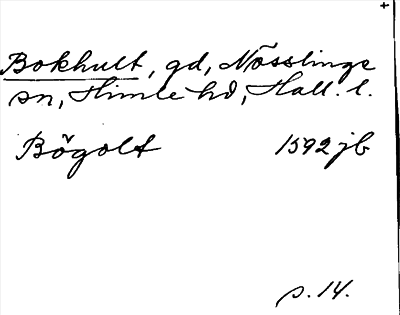 Bokhult, gd, Nösslinge
sn, Himle hd, Hall. l.
Bögolt 1592 jb
s. 14.